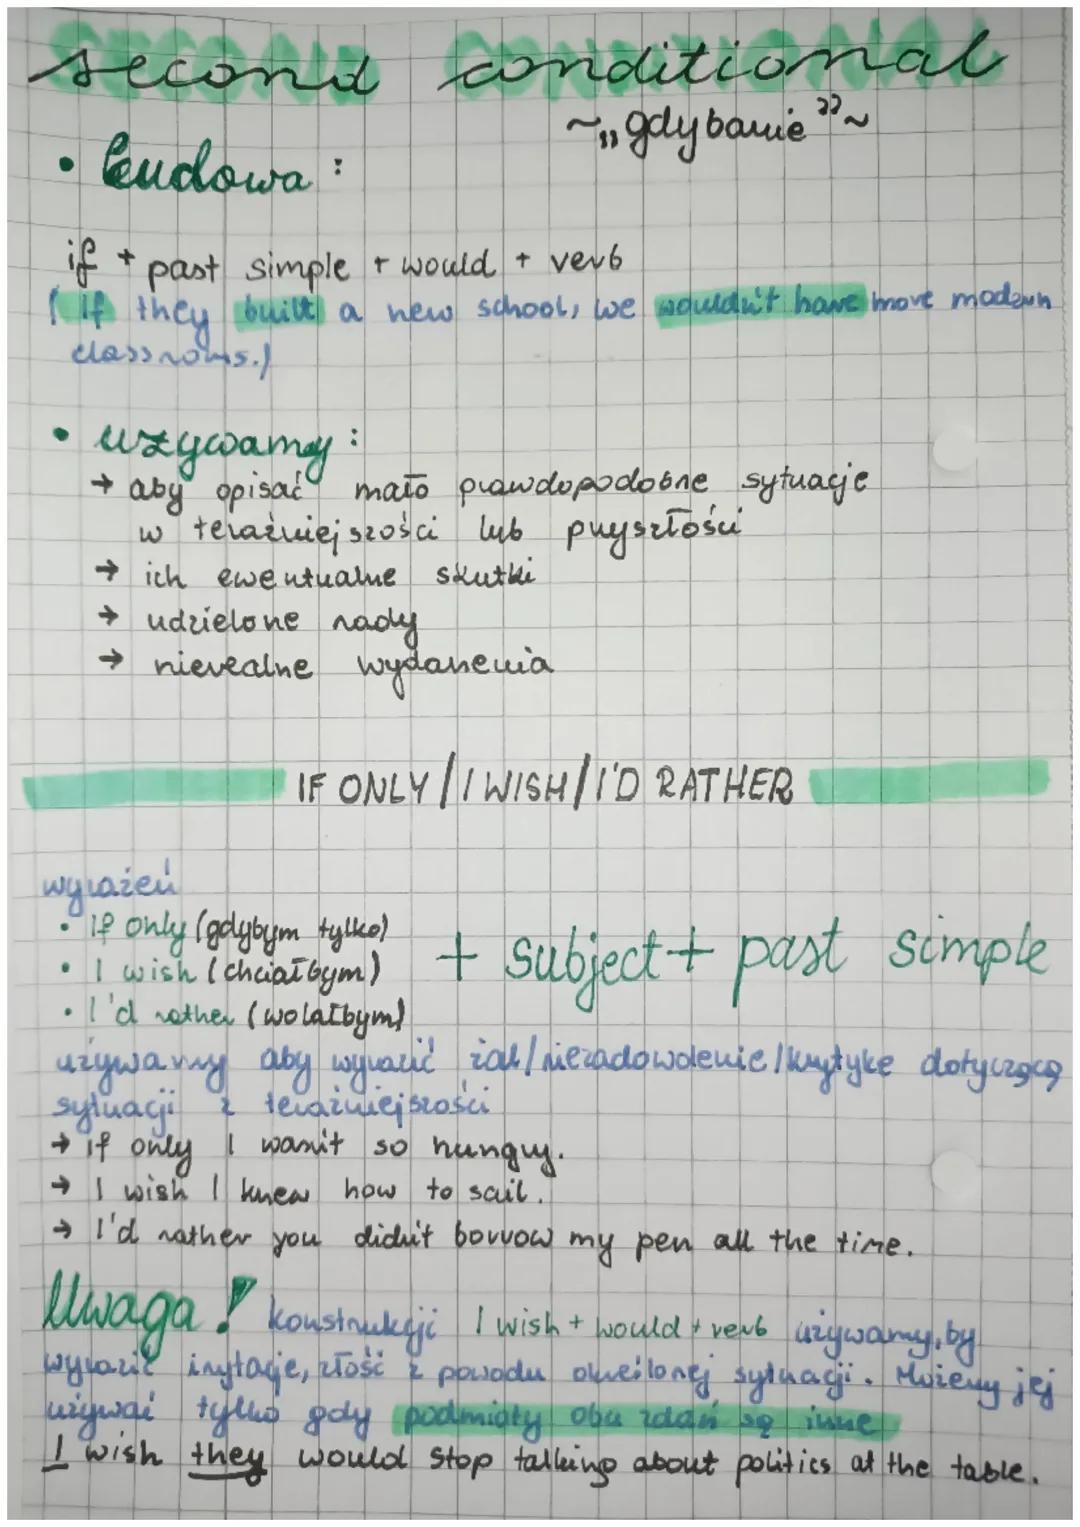 second conditional
~„gdybanie"~
• budowa:
if + past simple + would + verb
(If they built a new school, we wouldn't have more modern
classrooms.)
• używamy:
→ aby opisać mało prawdopodobne sytuacje
w teraźniejszości lub przyszłości
→ ich ewentualne skutki
→ udzielone rady
→ nierealne wydarzenia
IF ONLY / I WISH / I'D RATHER
wyrażeń
• If only (gdybym tylko)
• I wish (chciałbym)
• I'd rather (wolałbym)
+ subject + past simple
używamy aby wyrazić żal/niezadowolenie/krytykę dotyczącą
sytuacji z teraźniejszości
→ if only I wasn't so hungry.
→ I wish I knew how to sail.
→ I'd rather you didn't borrow my pen all the time.
Uwaga! konstrukcji I wish + would + verb używamy, by
wyrazić irytację, złość z powodu określonej sytuacji. Możemy jej
używać tylko gdy podmioty obu zdań są inne
I wish they would stop talking about politics at the table.